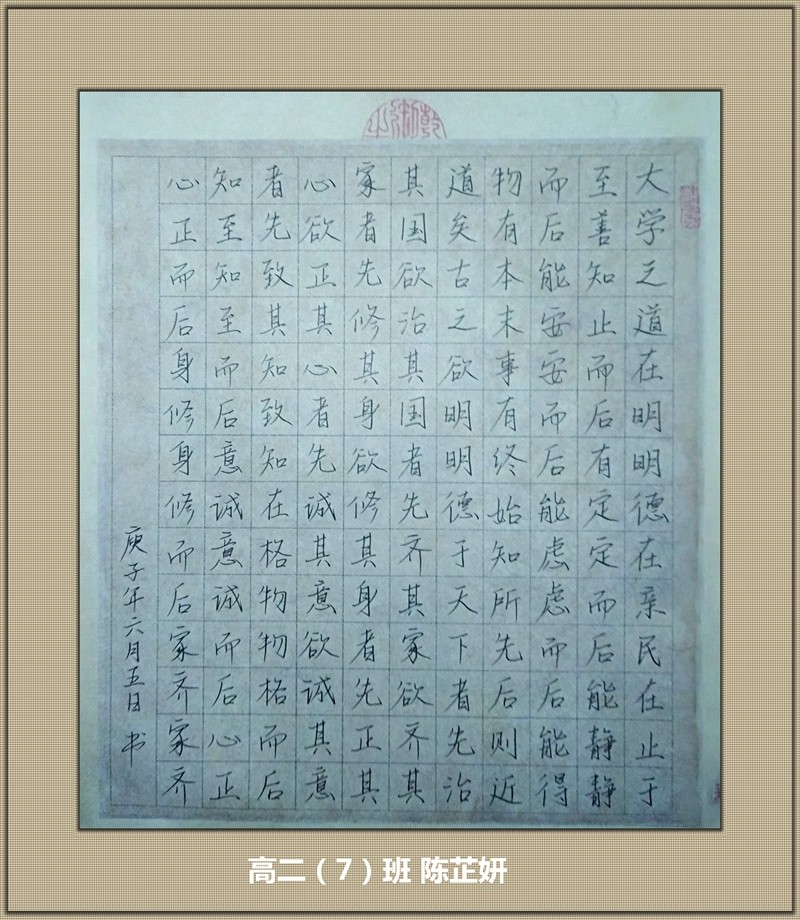 大学之道在明明德在亲民在止于
至善知止而后有定定而后能静静
而后能安安而后能虑虑而后能得
物有本末事有终始知所先后则近
道矣古之欲明明德于天下者先治
其国欲治其国者先齐其家欲齐其
家者先修其身欲修其身者先正其
心欲正其心者先诚其意欲诚其意
者先致其知致知在格物物格而后
知至知至而后意诚意诚而后心正
心正而后身修身修而后家齐家齐
庚子年六月五日 书
高二（7）班 陈芷妍